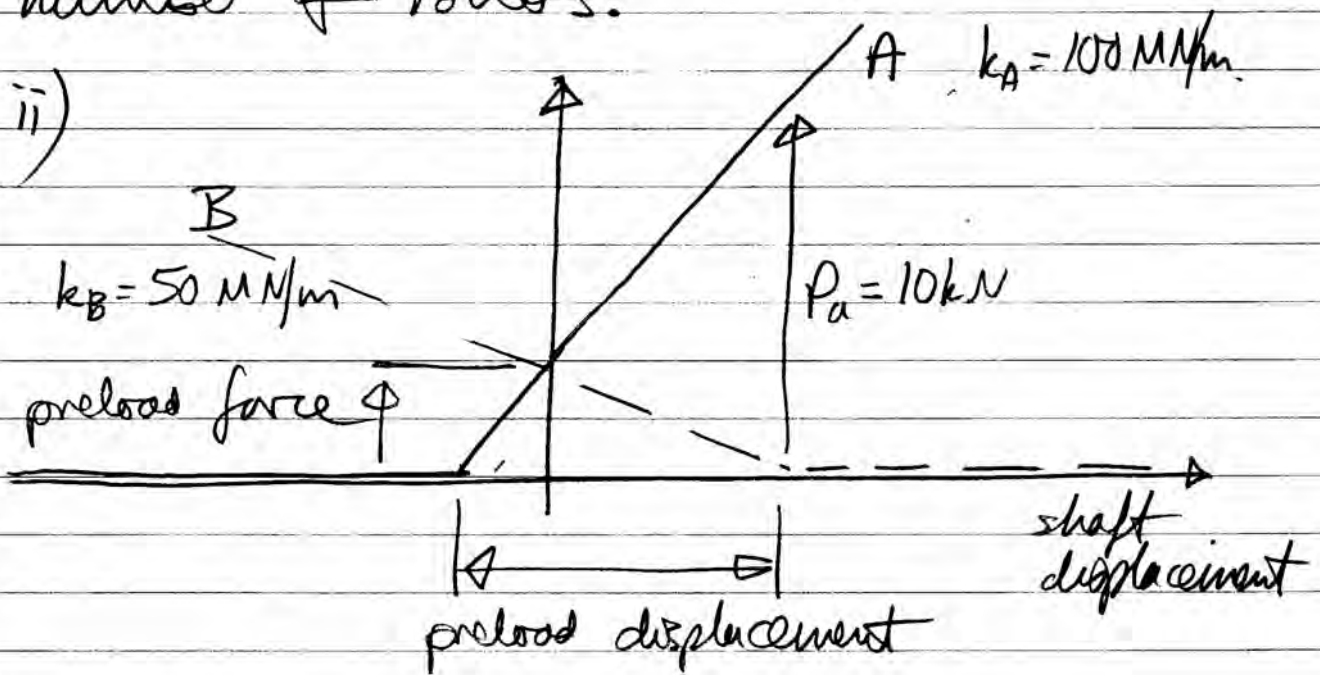 number of rollers.
ii)
A k_A = 100 MN/m.
B
k_B = 50 MN/m
P_a = 10kN
preload force
shaft
displacement
preload displacement